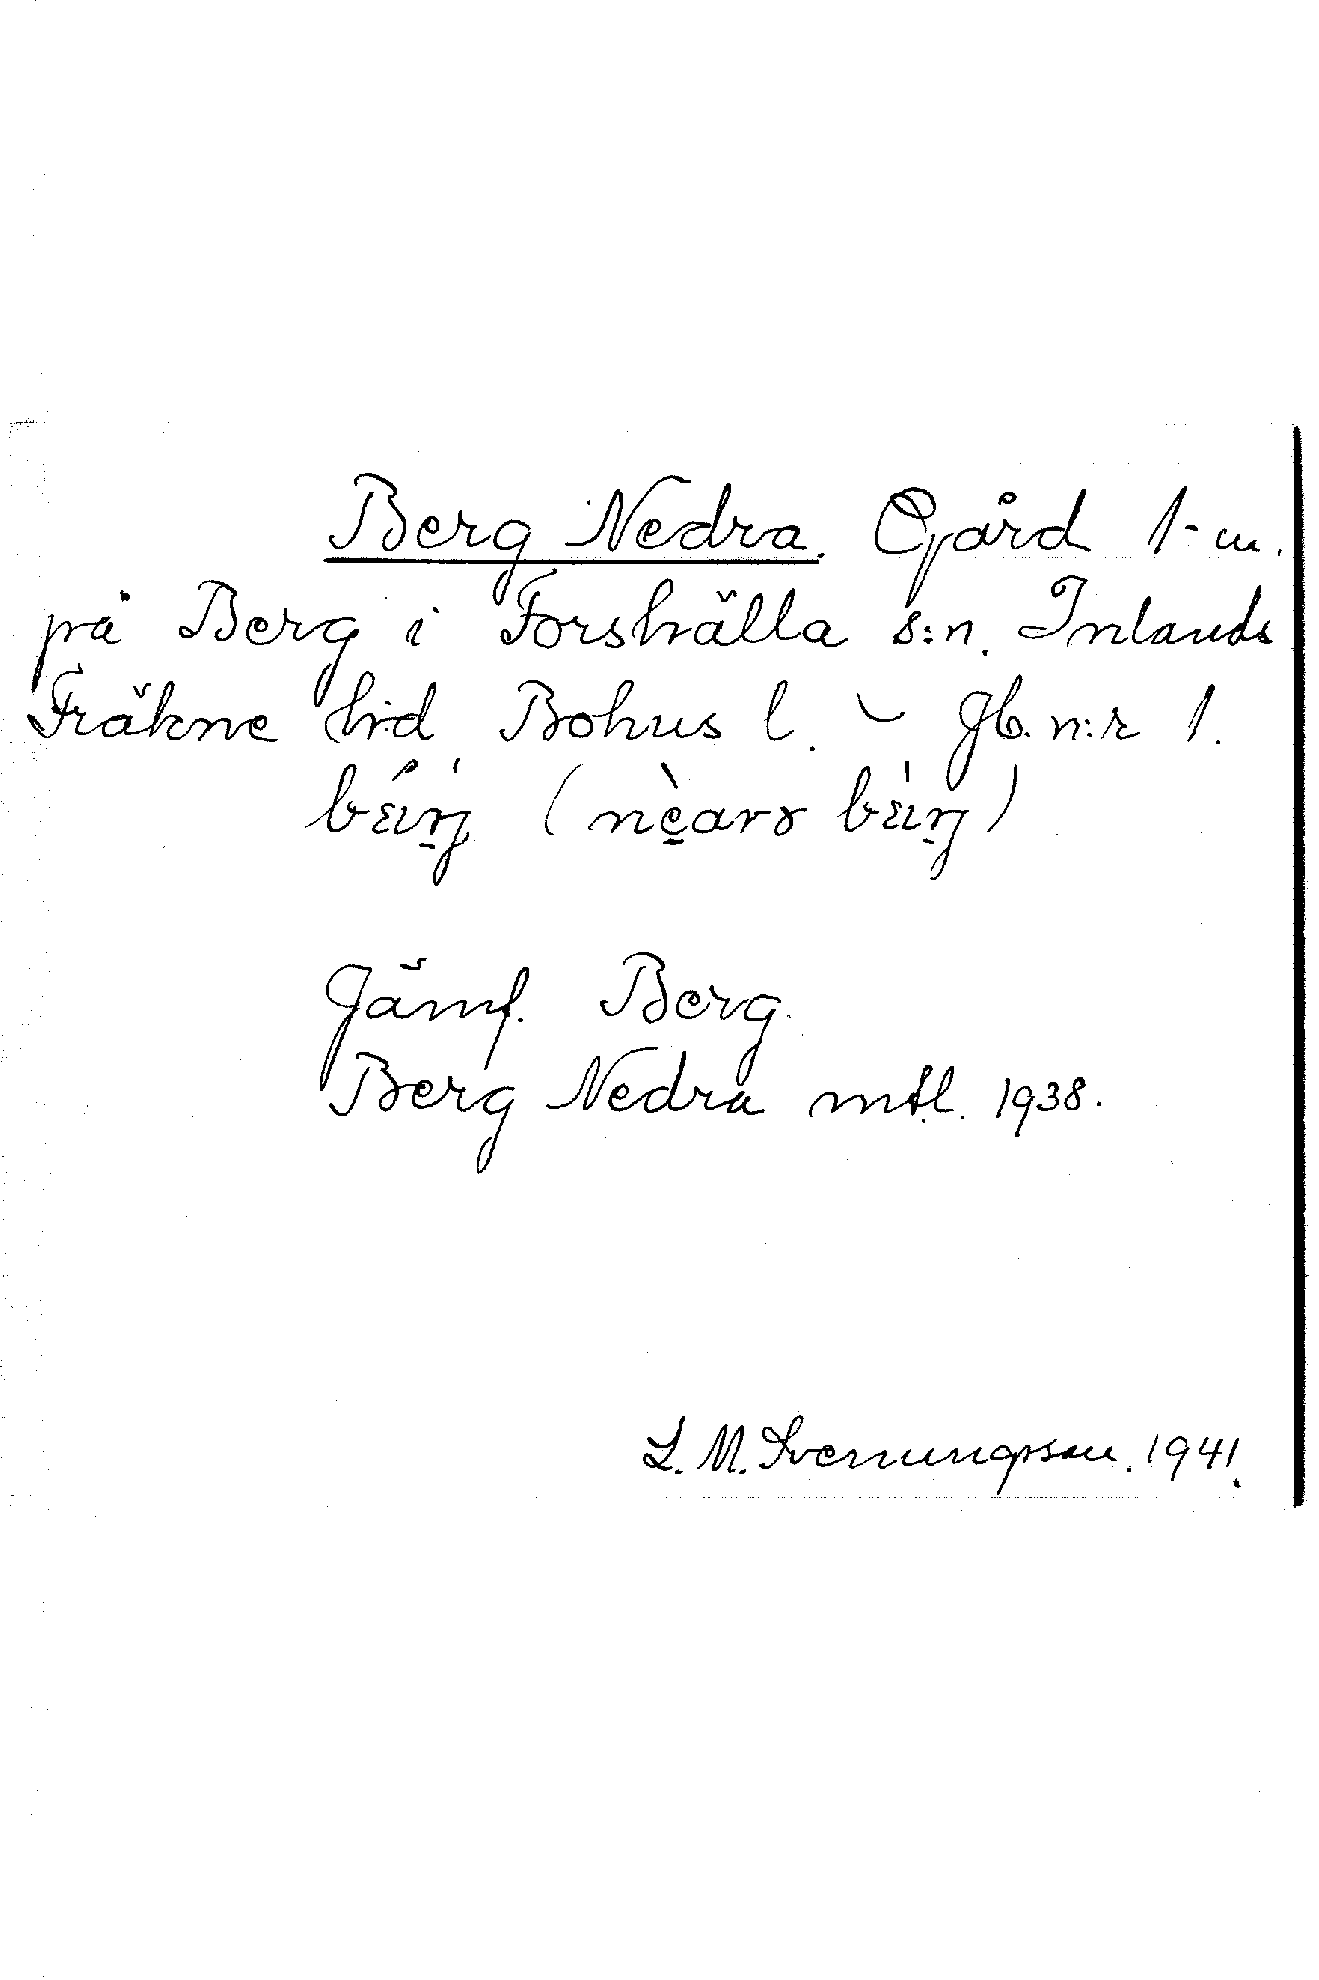 Berg Nedra. Gård 1-m.
på Berg i Forshälla s:n. Inlands
Fräkne hrd, Bohus l. – Jb. n:r 1.
( )
Jämf. Berg.
Berg Nedra mtl. 1938.
L. M. Svenungsson. 1941.